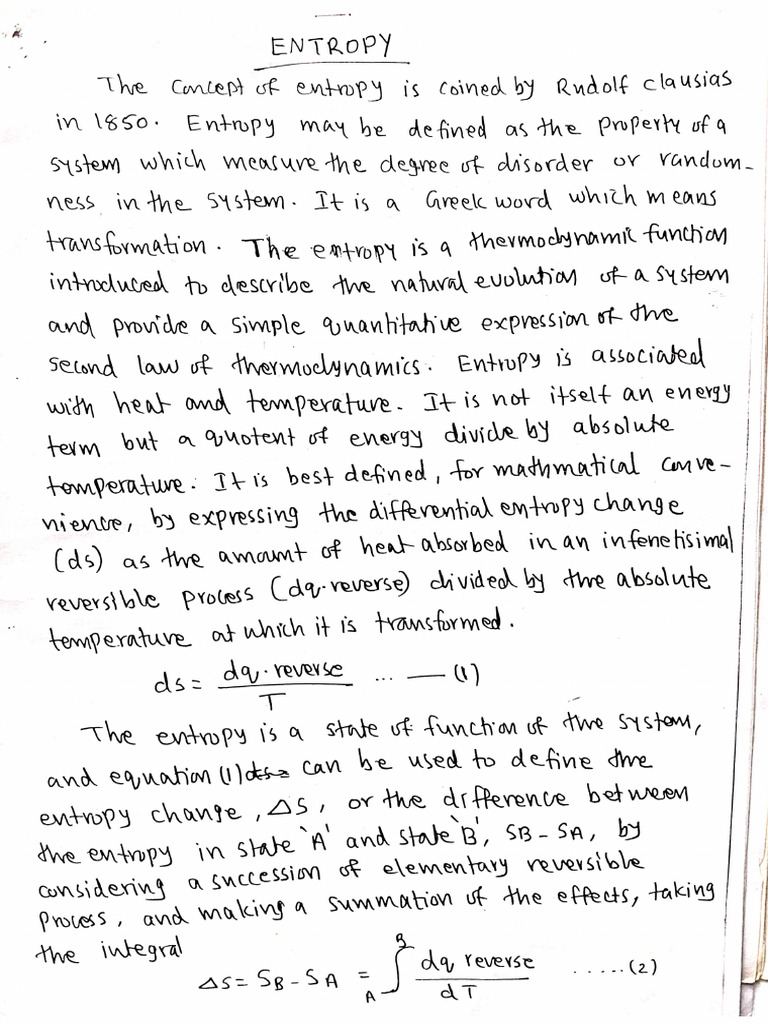 ENTROPY
The concept of entropy is coined by Rudolf clausias
in 1850. Entropy may be defined as the property of a
system which measure the degree of disorder or random-
ness in the system. It is a Greek word which means
transformation. The entropy is a thermodynamic function
introduced to describe the natural evolution of a system
and provide a simple quantitative expression of the
second law of thermodynamics. Entropy is associated
with heat and temperature. It is not itself an energy
term but a quotent of energy divide by absolute
temperature. It is best defined, for mathmatical conve-
nience, by expressing the differential entropy change
(ds) as the amount of heat absorbed in an infenetisimal
reversible process (dq.reverse) divided by the absolute
temperature at which it is transformed.
ds = dq.reverse / T ... — (1)
The entropy is a state of function of the system,
and equation (1) ds= can be used to define the
entropy change, ΔS, or the difference between
the entropy in state 'A' and state 'B', SB - SA, by
considering a succession of elementary reversible
process, and making a summation of the effects, taking
the integral
ΔS = SB - SA = A∫B dq reverse / dT .....(2)